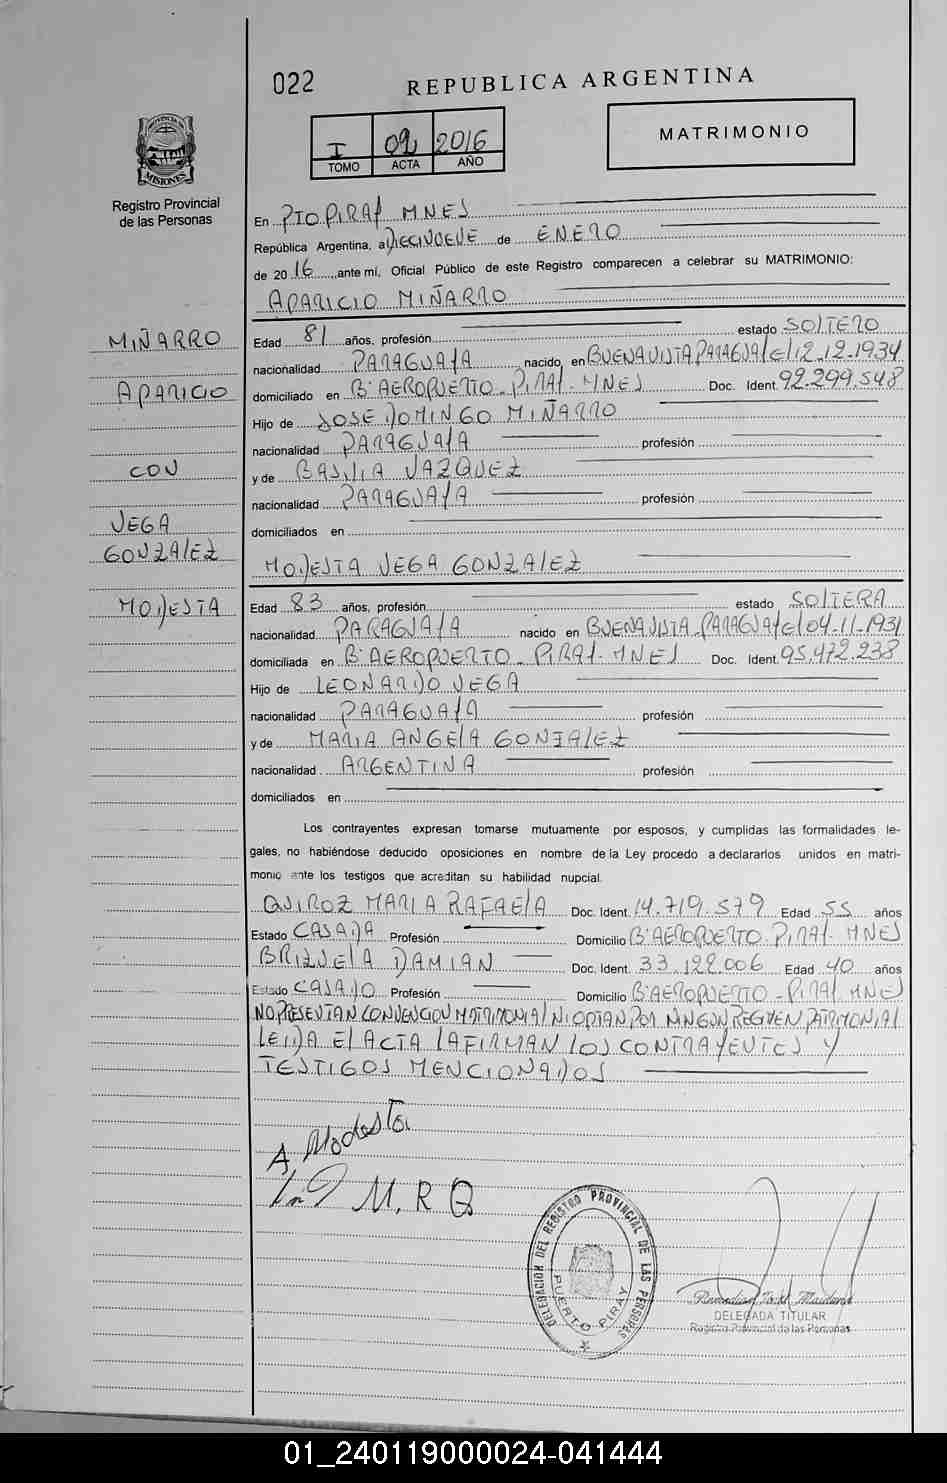 022
REPUBLICA ARGENTINA
MATRIMONIO
I 02 2016
TOMO ACTA AÑO
PROVINCIA DE MISIONES
Registro Provincial
de las Personas
En PTO PIRAY MNES
República Argentina, a DIECINUEVE de ENERO
de 2016, ante mí, Oficial Público de este Registro comparecen a celebrar su MATRIMONIO:
APARICIO MIÑARRO
MIÑARRO
APARICIO
CON
VEGA
GONZALEZ
MODESTA
Edad 81 años, profesión estado SOLTERO
nacionalidad PARAGUAYA nacido en BUENA VISTA PARAGUAY el 12-12-1934
domiciliado en Bº AEROPUERTO - PIRAY - MNES Doc. Ident. 92.299.548
Hijo de JOSE DOMINGO MIÑARRO
nacionalidad PARAGUAYA profesión
y de BASILIA VAZQUEZ
nacionalidad PARAGUAYA profesión
domiciliados en
MODESTA VEGA GONZALEZ
Edad 83 años, profesión estado SOLTERA
nacionalidad PARAGUAYA nacido en BUENA VISTA - PARAGUAY el 04-11-1931
domiciliada en Bº AEROPUERTO - PIRAY - MNES Doc. Ident. 95.472.238
Hijo de LEONARDO VEGA
nacionalidad PARAGUAYA profesión
y de MARIA ANGELA GONZALEZ
nacionalidad ARGENTINA profesión
domiciliados en
Los contrayentes expresan tomarse mutuamente por esposos, y cumplidas las formalidades le-
gales, no habiéndose deducido oposiciones en nombre de la Ley procedo a declararlos unidos en matri-
monio ante los testigos que acreditan su habilidad nupcial.
QUIROZ MARIA RAFAELA Doc. Ident. 14.719.579 Edad 55 años
Estado CASADA Profesión Domicilio Bº AEROPUERTO - PIRAY - MNES
BRIZUELA DAMIAN Doc. Ident. 33.122.006 Edad 40 años
Estado CASADO Profesión Domicilio Bº AEROPUERTO - PIRAY MNES
NO PRESENTAN CONVENCION MATRIMONIAL NI OPTAN POR NINGUN REGIMEN PATRIMONIAL
LEIDA EL ACTA LA FIRMAN LOS CONTRAYENTES Y
TESTIGOS MENCIONADOS
A Modesta
M. R Q
DELEGACION DEL REGISTRO PROVINCIAL DE LAS PERSONAS
PUERTO PIRAY
DELEGADA TITULAR
Registro Provincial de las Personas
01_240119000024-041444